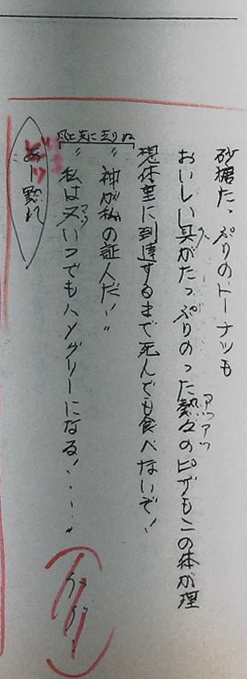 砂糖たっぷりのドーナツも
おいしい具がたっぷりのった熱々のピザもこの体が理
アツアツ
想体重に到達するまで死んでも食べないぞ!
"神が私の証人だ!"
"私は又いつでもハングリーになる!・・・"
風と共に去りぬ
あー黙れ